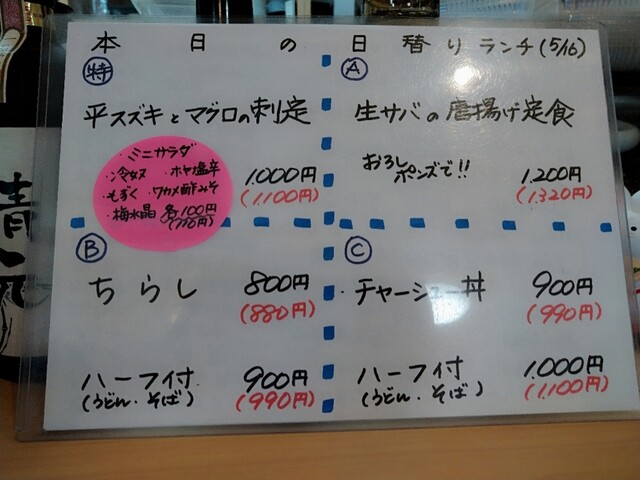 本日の日替りランチ(5/16)
特
平スズキとマグロの刺定
1.000円
(1.100円)
・ミニサラダ
・冷奴 ・ホヤ塩辛
・もずく ・ワカメ酢みそ
・梅水晶 各100円
(110円)
A
生サバの唐揚げ定食
おろし
ポンズで!!
1.200円
(1.320円)
B
ちらし 800円
(880円)
ハーフ付 900円
(うどん・そば) (990円)
C
チャーシュー丼 900円
(990円)
ハーフ付 1.000円
(うどん・そば) (1.100円)